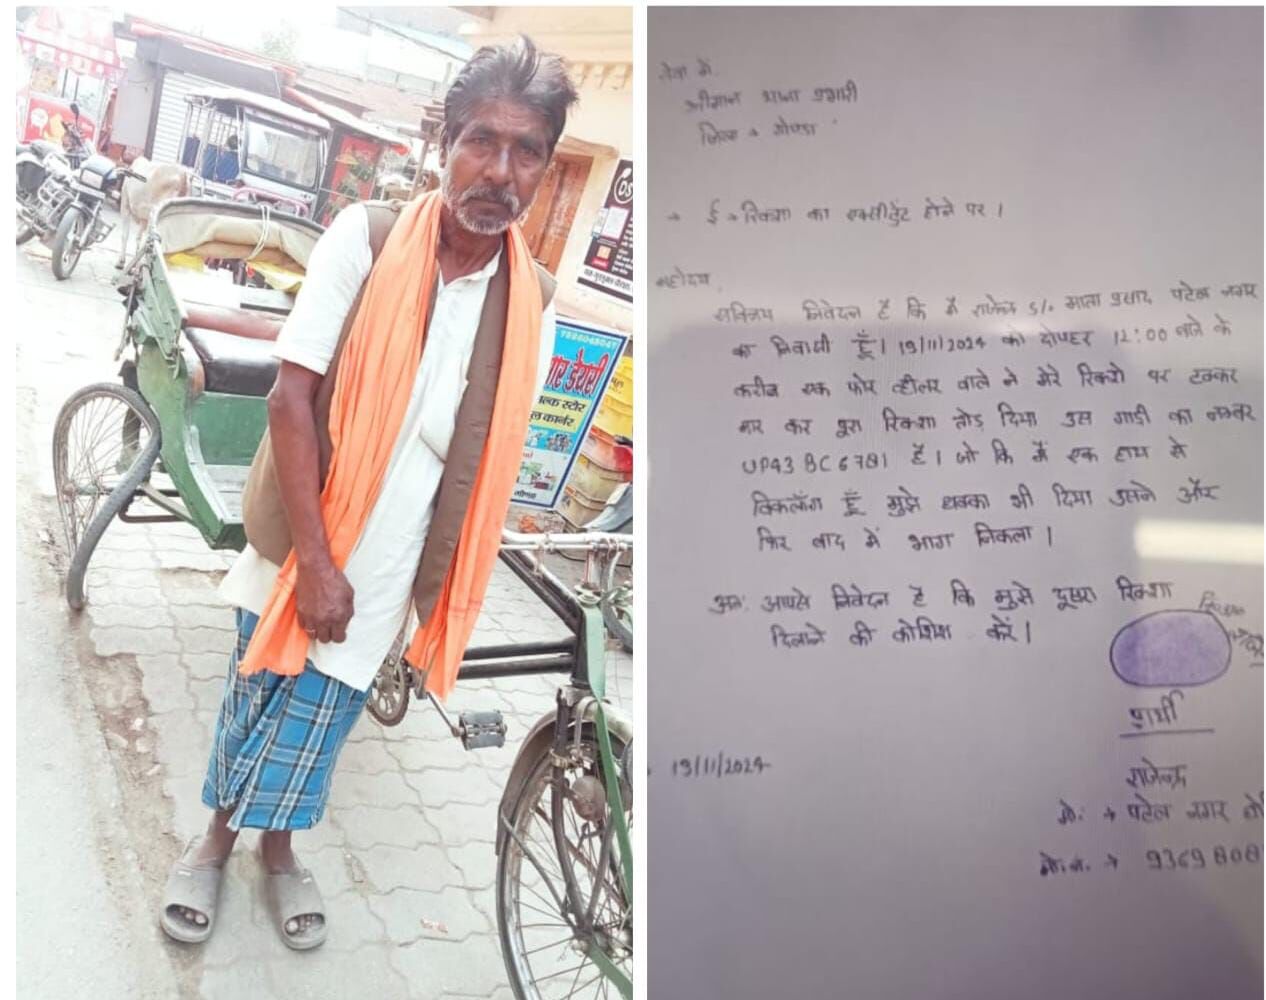 7526048047
डेयरी
मिल्क स्टोर
कार्नर
गोण्डा
DS
सेवा में,
श्रीमान थाना प्रभारी
जिला → गोण्डा
→ ई → रिक्शा का एक्सीडेंट होने पर।
महोदय,
सविनय निवेदन है कि मैं राजेन्द्र S/o माता प्रसाद पटेल नगर
का निवासी हूँ। 19/11/2024 को दोपहर 12:00 बजे के
करीब एक फोर व्हीलर वाले ने मेरे रिक्शे पर टक्कर
मार कर पूरा रिक्शा तोड़ दिया उस गाडी का नम्बर
UP43 BC 6781 है। जो कि मैं एक हाथ से
विकलाँग हूँ मुझे धक्का भी दिया उसने और
फिर बाद में भाग निकला।
अतः आपसे निवेदन है कि मुझे दूसरा रिक्शा
दिलाने की कोशिश करें।
प्रार्थी
19/11/2024
राजेन्द्र
मो. → पटेल नगर
मो.न. → 9369808